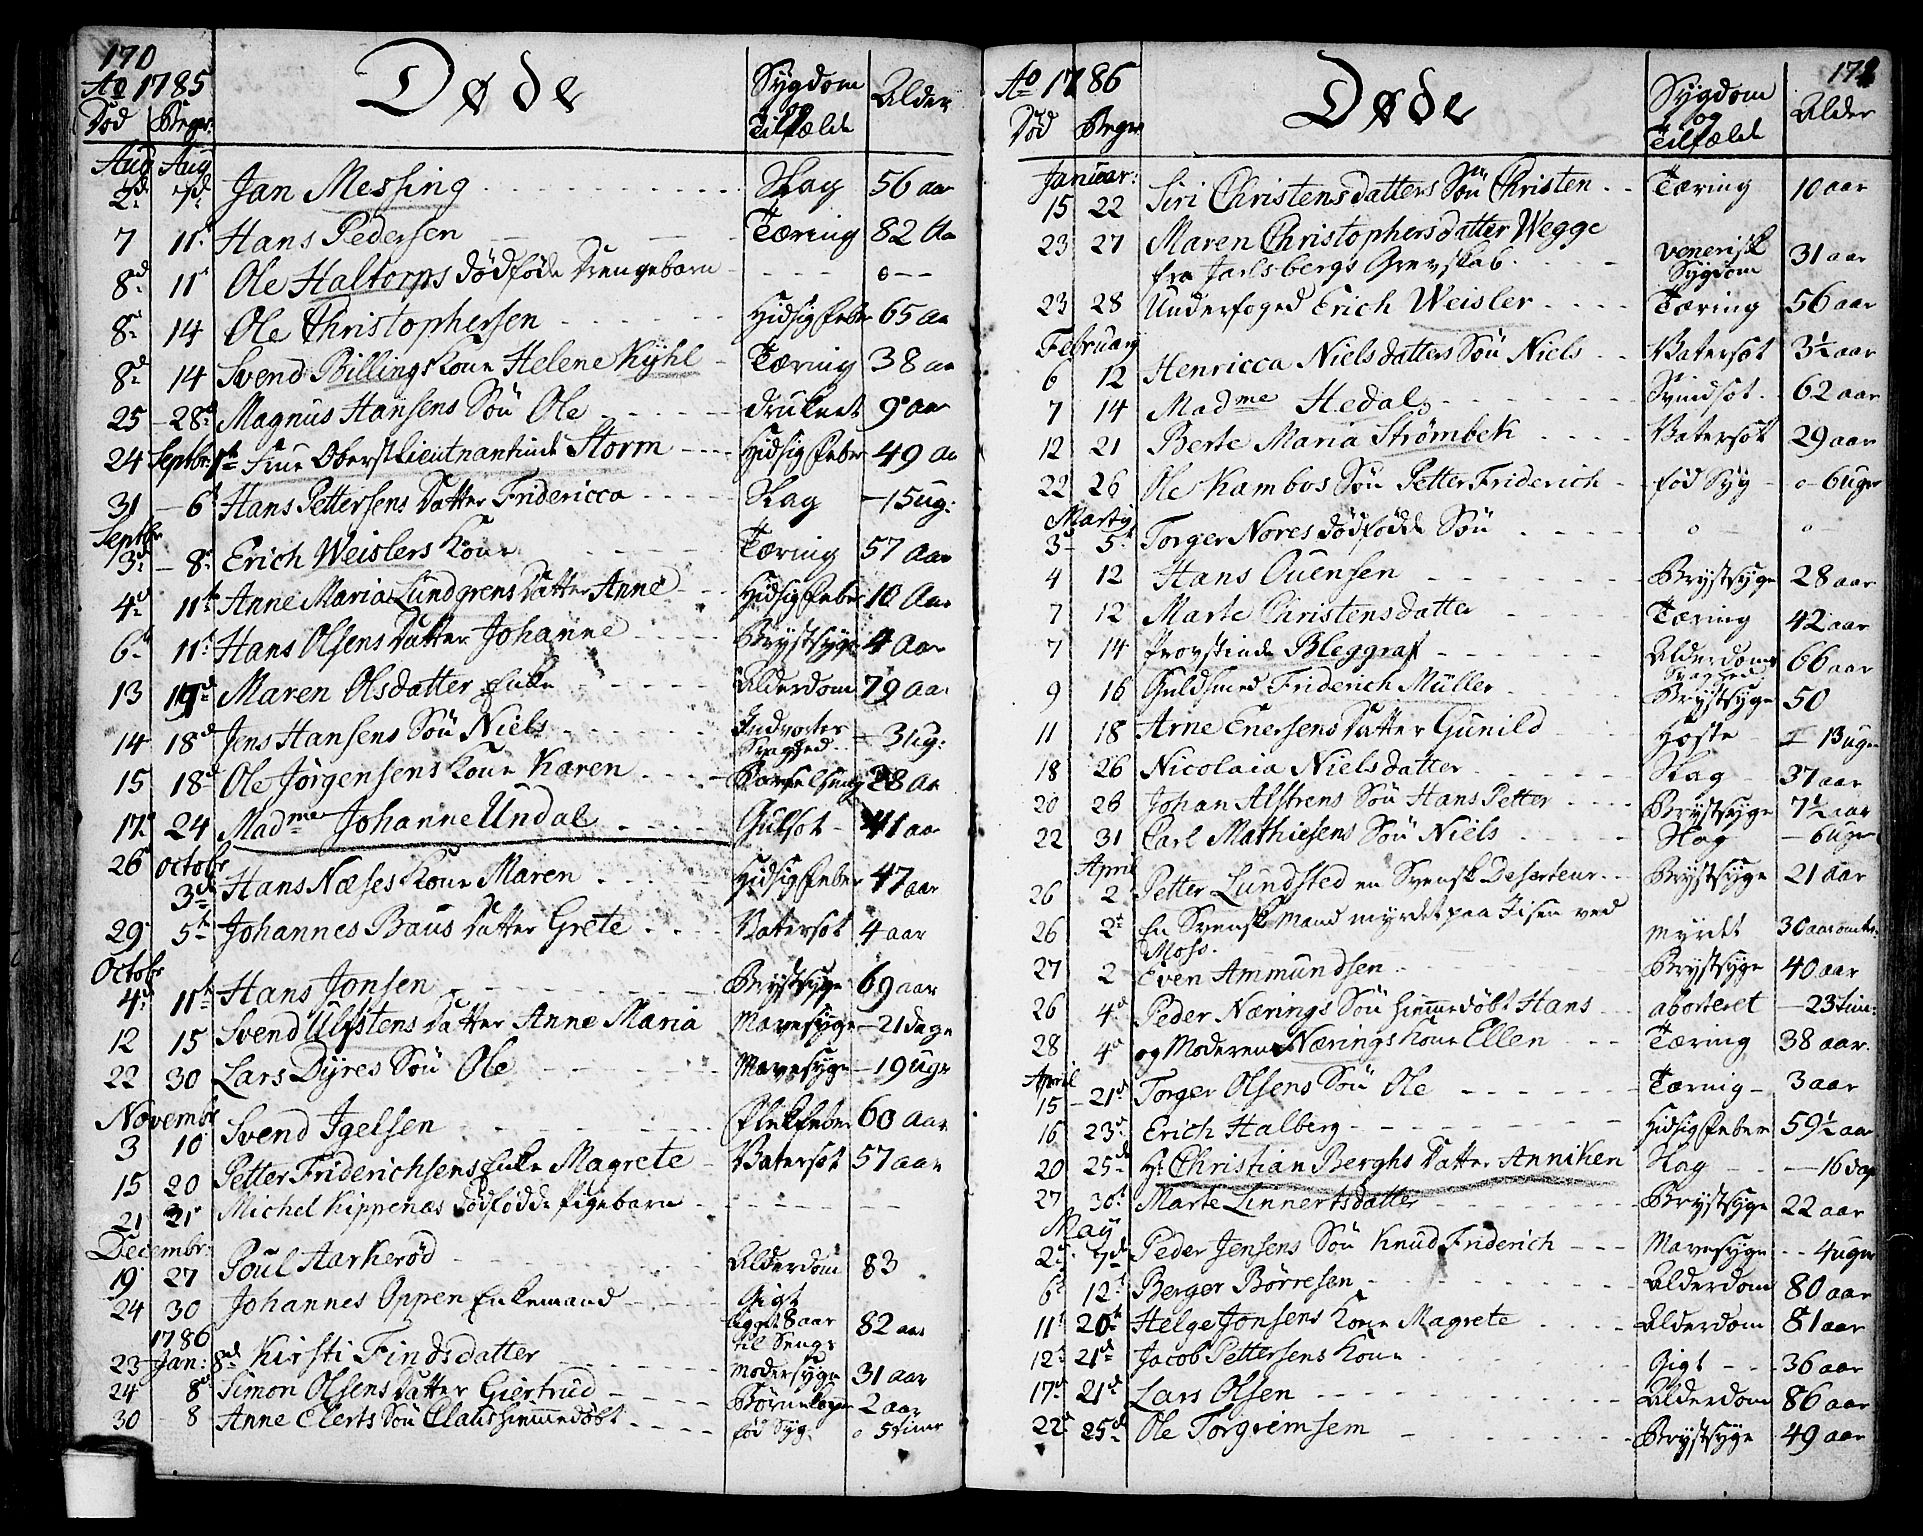 170
Ao 1785 Døde Sygdom og Tilfælde Alder
Død Begr:
Aug Aug
2d 7d Jan Messing Slag 56 aar
7 11t Hans Pedersen Tæring 82 Aa
8d 11t Ole Haltorps dødføde Drengebarn o
8d 14 Ole Christophersen Hidsig Feber 65 Aa
8d 14 Svend Billings Kone Helene Kyhl Tæring 38 aa
25 28d Magnus Hansens Søn Ole druknet 9 aar
24 Septbr: 1te Frue Oberst Lieutnantinde Storm Hidsig Feber 49 Aa
31 6t Hans Pettersens Datter Fridericca Slag 15 ug:
Septbr
3d 8d Erich Weislers Kone Tæring 57 Aar
4d 11te Anne Maria Lundgrens Datter Anne Hidsig Feber 10 Aar
6t 11t Hans Olsens Datter Johanne Brystsyge 4 Aar
13 Maren Olsdatter Enke Alderdom 79 Aa
14 18d Jens Hansens Søn Niels Indvortes Svaghed 3 ug:
15 18d Ole Jørgensens Kone Karen Barselseng 28 Aa
17 24 Madme Johanne Undal Gulsot 41 aa
26 Octobr
3d Hans Næses Kone Maren Hidsig Feber 47 aar
29 5te Johannes Baus Datter Grete Vatersot 4 aar
Octobr
4d 11te Hans Jonsen Brystsyge 69 aar
12 15 Svend Ulfstens Datter Anne Maria Mavesyge 21 dage
22 30 Lars Dyres Søn Ole Mavesyge 19 Uger
Novembr
3 10 Svend Igelsen Flekfeber 60 Aar
15 20 Petter Friderichsens Enke Magrete Vatersot 57 aar
21 21 Michel Kippenæs dødfødde Pigebarn
Decembr:
19 27 Poul Aarkerød Alderdom 83
24 30 Johannes Oppen Enkemand Gigt ligget 8 aar til Sengs 82 aar
1786
23 Jan: 8d Kirsti Findsdatter Modersyge 31 aar
24 8d Simon Olsens Datter Giertrud Børnekopper 2 aar
30 8 Anne Elerts Søn Claus hiemmedøbt fød Syg. 5 timer
171
Ao 1786 Døde Sygdom og Tilfælde Alder
Død Begr
Januar:
15 22 Siri Christensdatters Søn Christen Tæring 10 aar
23 27 Maren Christophersdatter Wegge
fra Jarlsbergs Grevskab. venerisk Sygdom 31 aar
23 28 Underfoged Erich Weisler Tæring 56 aar
February
6 12 Henricca Nielsdatters Søn Niels Vatersot 3½ aar
7 14 Madme Hedals Svindsot 62 aar
12 21 Berte Maria Strømbek Vatersot 29 aar
22 26 Ole Kambos Søn Petter Friderich fød Syg 6 uger
Martij
3d 5t Torger Nores dødfødde Søn o o
4 12 Hans Ouensen Brystsyge 28 aar
7 12 Marte Christensdatter Tæring 42 aar
7 14 Provstinde Bleggraf Alderdoms Svaghed 66 aar
9 16 Guldsmed Friderich Müller Brystsyge 50
11 18 Arne Enersens Datter Gunild Hoste 13 uger
18 26 Nicolaia Nielsdatter Slag 37 aar
20 26 Johan Alstrens Søn Hans Petter Brystsyge 7½ aar
22 31 Carl Mathiesens Søn Niels Slag 6 uger
April
26 2 Petter Lundsted en Svensk Deserteur Brystsyge 21 Aar
26 2t En Svensk Mand myrdet paa Iisen ved
Moss. myrdet 30 aar omtr:
27 2 Even Ammundsen Brystsyge 40 aar
26 4d Peder Nærings Søn hiemmedøbt Hans aborteret 23 tim:
28 4d og Moderen Nærings Kone Ellen Tæring 38 aar.
April
15 21d Torger Olsens Søn Ole Tæring 3 aar
16 23d Erich Halberg Hidsig Feber 59½ aar
20 25d Hr Christian Berghs Datter Anniken Slag 16 dag
27 30t Marte Linnertsdatter Brystsyge 22 aar
May
2d 7d Peder Jensens Søn Knud Friderich Mavesyge 4 uger
6t 12t Berger Børresen Alderdom 80 aar
11t 20t Helge Jonsens Kone Magrete Alderdom 81 aar
12t 21d Jacob Pettersens Kone Gigt 36 aar
17d 21d Lars Olsen Alderdom 86 aar
22d 25d Ole Torgrimsem Brystsyge 49 aar